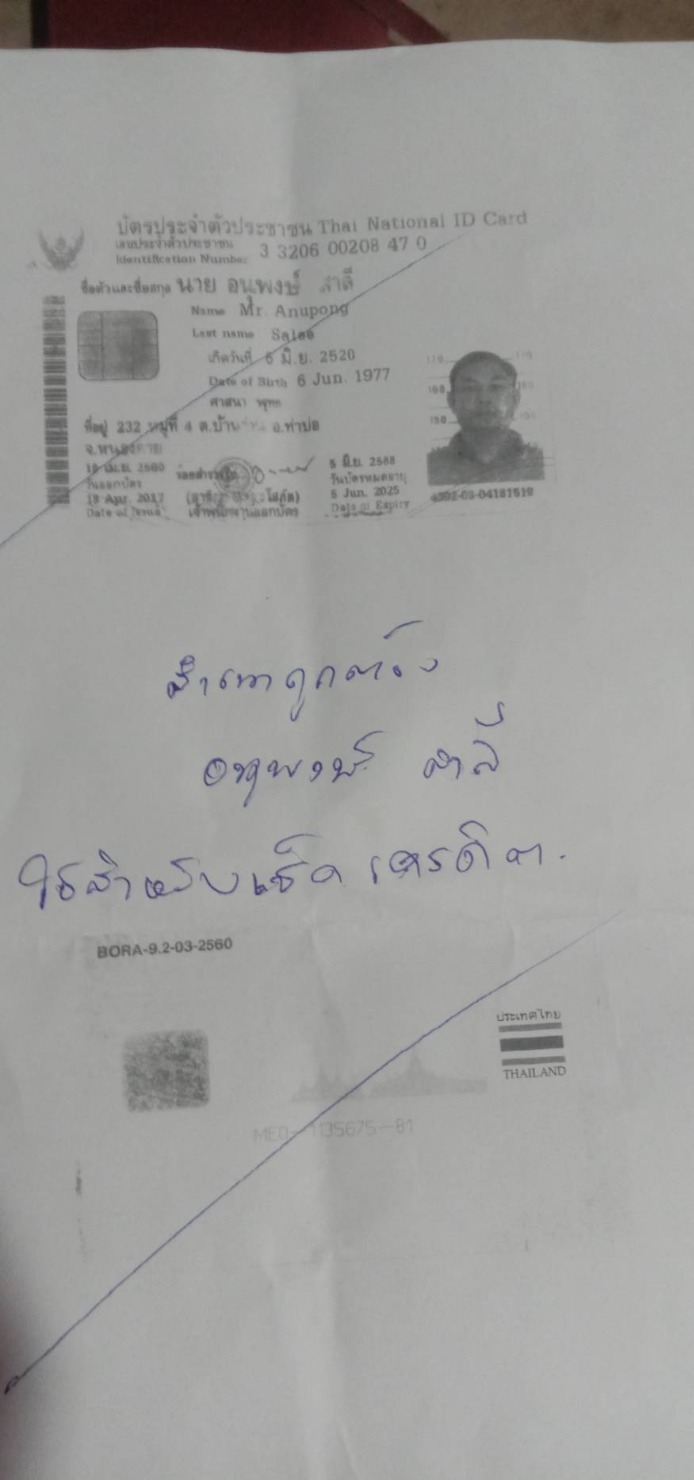 บัตรประจำตัวประชาชน Thai National ID Card
เลขประจำตัวประชาชน
Identification Number 3 3206 00208 47 0
ชื่อตัวและชื่อสกุล นาย อนุพงษ์ สาลี
Name Mr. Anupong
Last name Salee
เกิดวันที่ 6 มิ.ย. 2520
Date of Birth 6 Jun. 1977
ศาสนา พุทธ
ที่อยู่ 232 หมู่ที่ 4 ต.บ้าน อ.ท่าบ่อ
จ.หนองคาย
18 เม.ย. 2560
วันออกบัตร
18 Apr. 2017
Date of Issue
เจ้าพนักงานออกบัตร
5 มิ.ย. 2568
วันบัตรหมดอายุ
5 Jun. 2025
Date of Expiry
170 170
160 160
150 150
สำเนาถูกต้อง
อนุพงษ์ สาลี
ใช้สำหรับเช็คเครดิต.
BORA-9.2-03-2560
ประเทศไทย
THAILAND